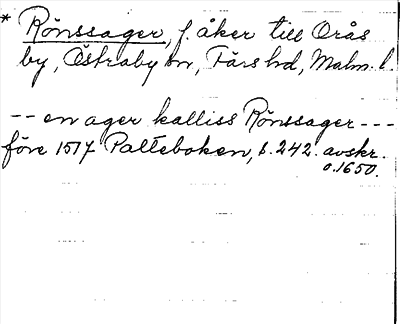 * Rönssager, f. åker till Orås
by, Östraby sn, Färs hd, Malm. l.
-- en ager kalliss Rönssager ---
före 1517 Palteboken, s. 242. avskr.
o. 1650.